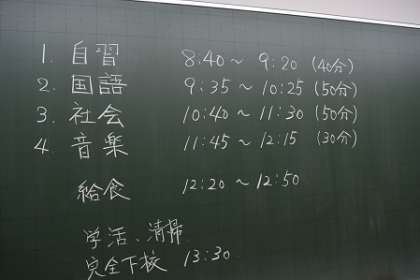 1. 自習 8:40～ 9:20 (40分)
2. 国語 9:35～ 10:25 (50分)
3. 社会 10:40～ 11:30 (50分)
4. 音楽 11:45～ 12:15 (30分)
給食 12:20～12:50
学活、清掃
完全下校 13:30